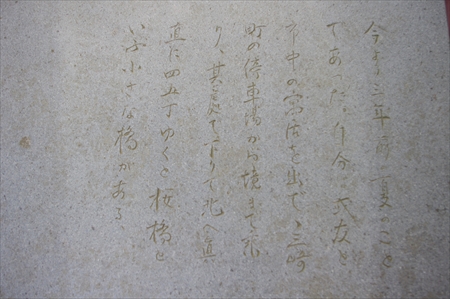 今より三年前の夏のこと
であった。自分は或友と
市中の寓居を出でゝ三崎
町の停車場から境まで乗
り、其處で下りて北へ真
直に四五丁ゆくと桜橋と
いふ小さな橋がある